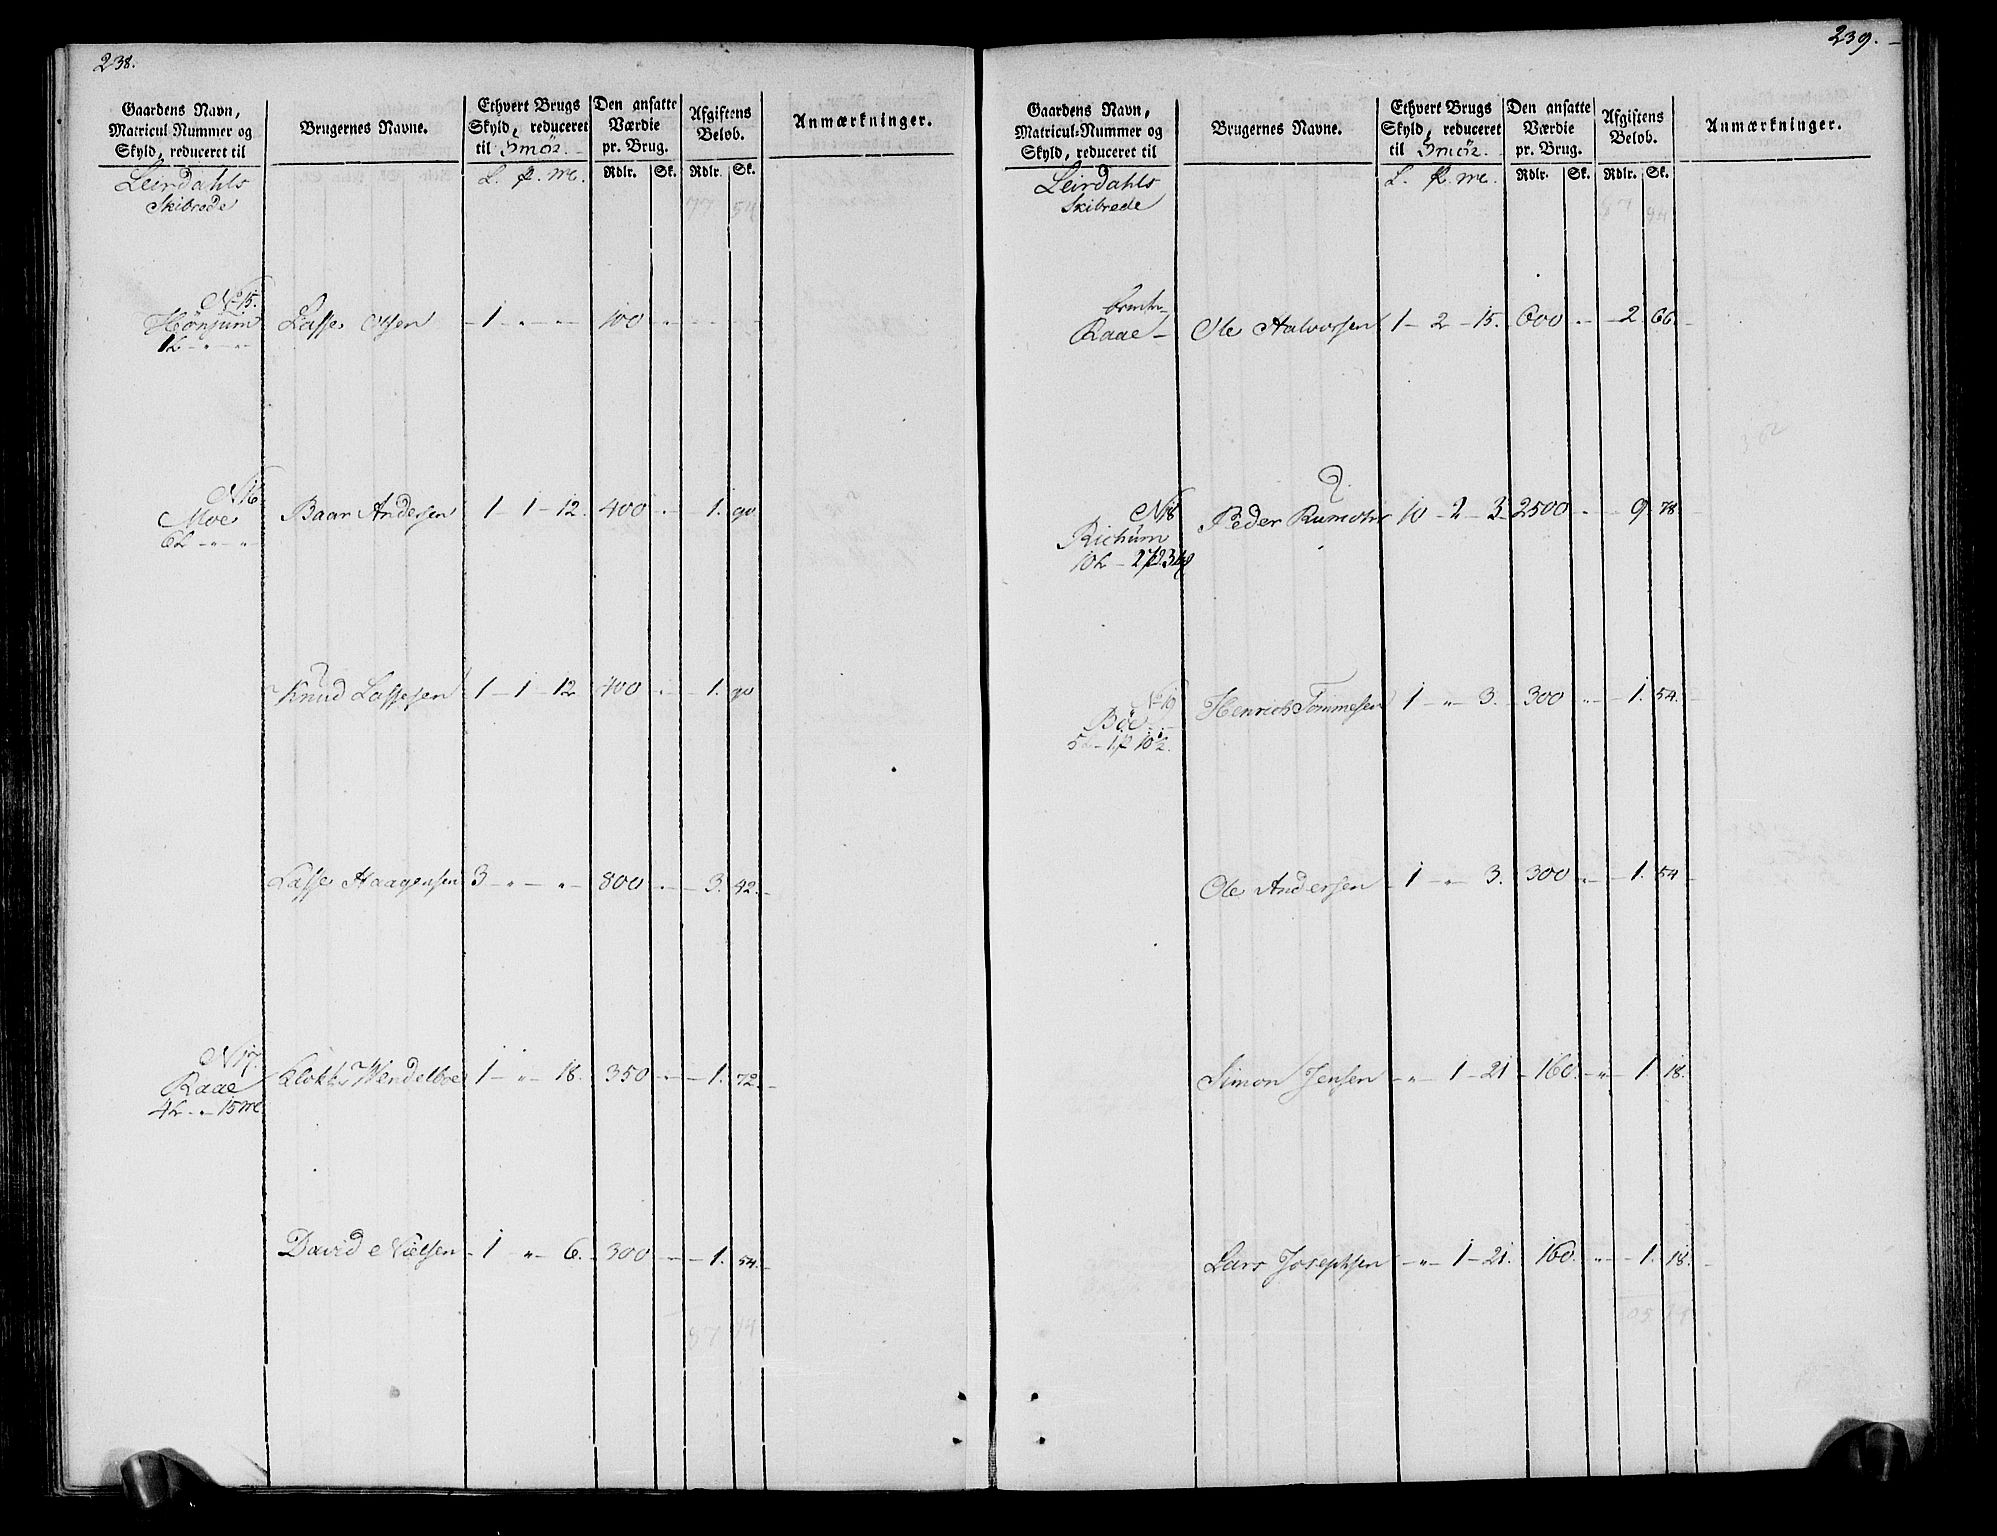 238.
Gaardens Navn, Matricul-Nummer og Skyld, reduceret til
Brugernes Navne.
Ethvert Brugs Skyld, reduceret til Smör.
Den ansatte Værdie pr. Brug.
Afgiftens Beløb.
Anmærkninger.
L. p. mc. Rdlr. Sk. Rdlr. Sk.
Leirdahls
Skibrede
77 54
No 15.
Hönjum Lasse Olsen – 1 – „ – „ – 100 „ – – – –
1 L – „ – „
N 16
Moe Baar Andersen 1 – 1 – 12. 400 „ – 1. 90
6 L – „ – „
Knud Lassesen 1 – 1 – 12 400 „ – 1. 90
Lasse Haagensen 3 – „ – „ – 800 „ – 3. 42. –
N 17.
Raae Klokk. Wendelboe 1 – „ – 18. 350 „ – 1. 72. –
4 L – „ – 15 mc
David Nielsen – 1 „ – 6. – 300 „ – 1. 54. –
87 94
239. –
Gaardens Navn, Matricul-Nummer og Skyld, reduceret til
Brugernes Navne.
Ethvert Brugs Skyld, reduceret til Smör.
Den ansatte Værdie pr. Brug.
Afgiftens Beløb.
Anmærkninger.
L. p. mc. Rdlr. Sk. Rdlr. Sk.
Leirdahls
Skibrede
87 94
Raae – Ole Halvorsen 1 – 2 – 15. 600 „ – 2. 66. –
N 18
Richum Peder Rumohr 10 – 2 – 3. 2500 „ – 9. 78. –
10 L – 2 p 3
No 19
Böe Henrich Tommesen 1 – „ – 3. – 300 „ – 1. 54. –
5 L – 1 p 10 ½.
Ole Andersen – 1 – „ – 3. – 300 „ – 1. 54 –
Simon Jensen – „ – 1 – 21 – 160. – „ – 1. 18.
Lars Josephsen – „ – 1 – 21. 160. „ – 1. 18. –